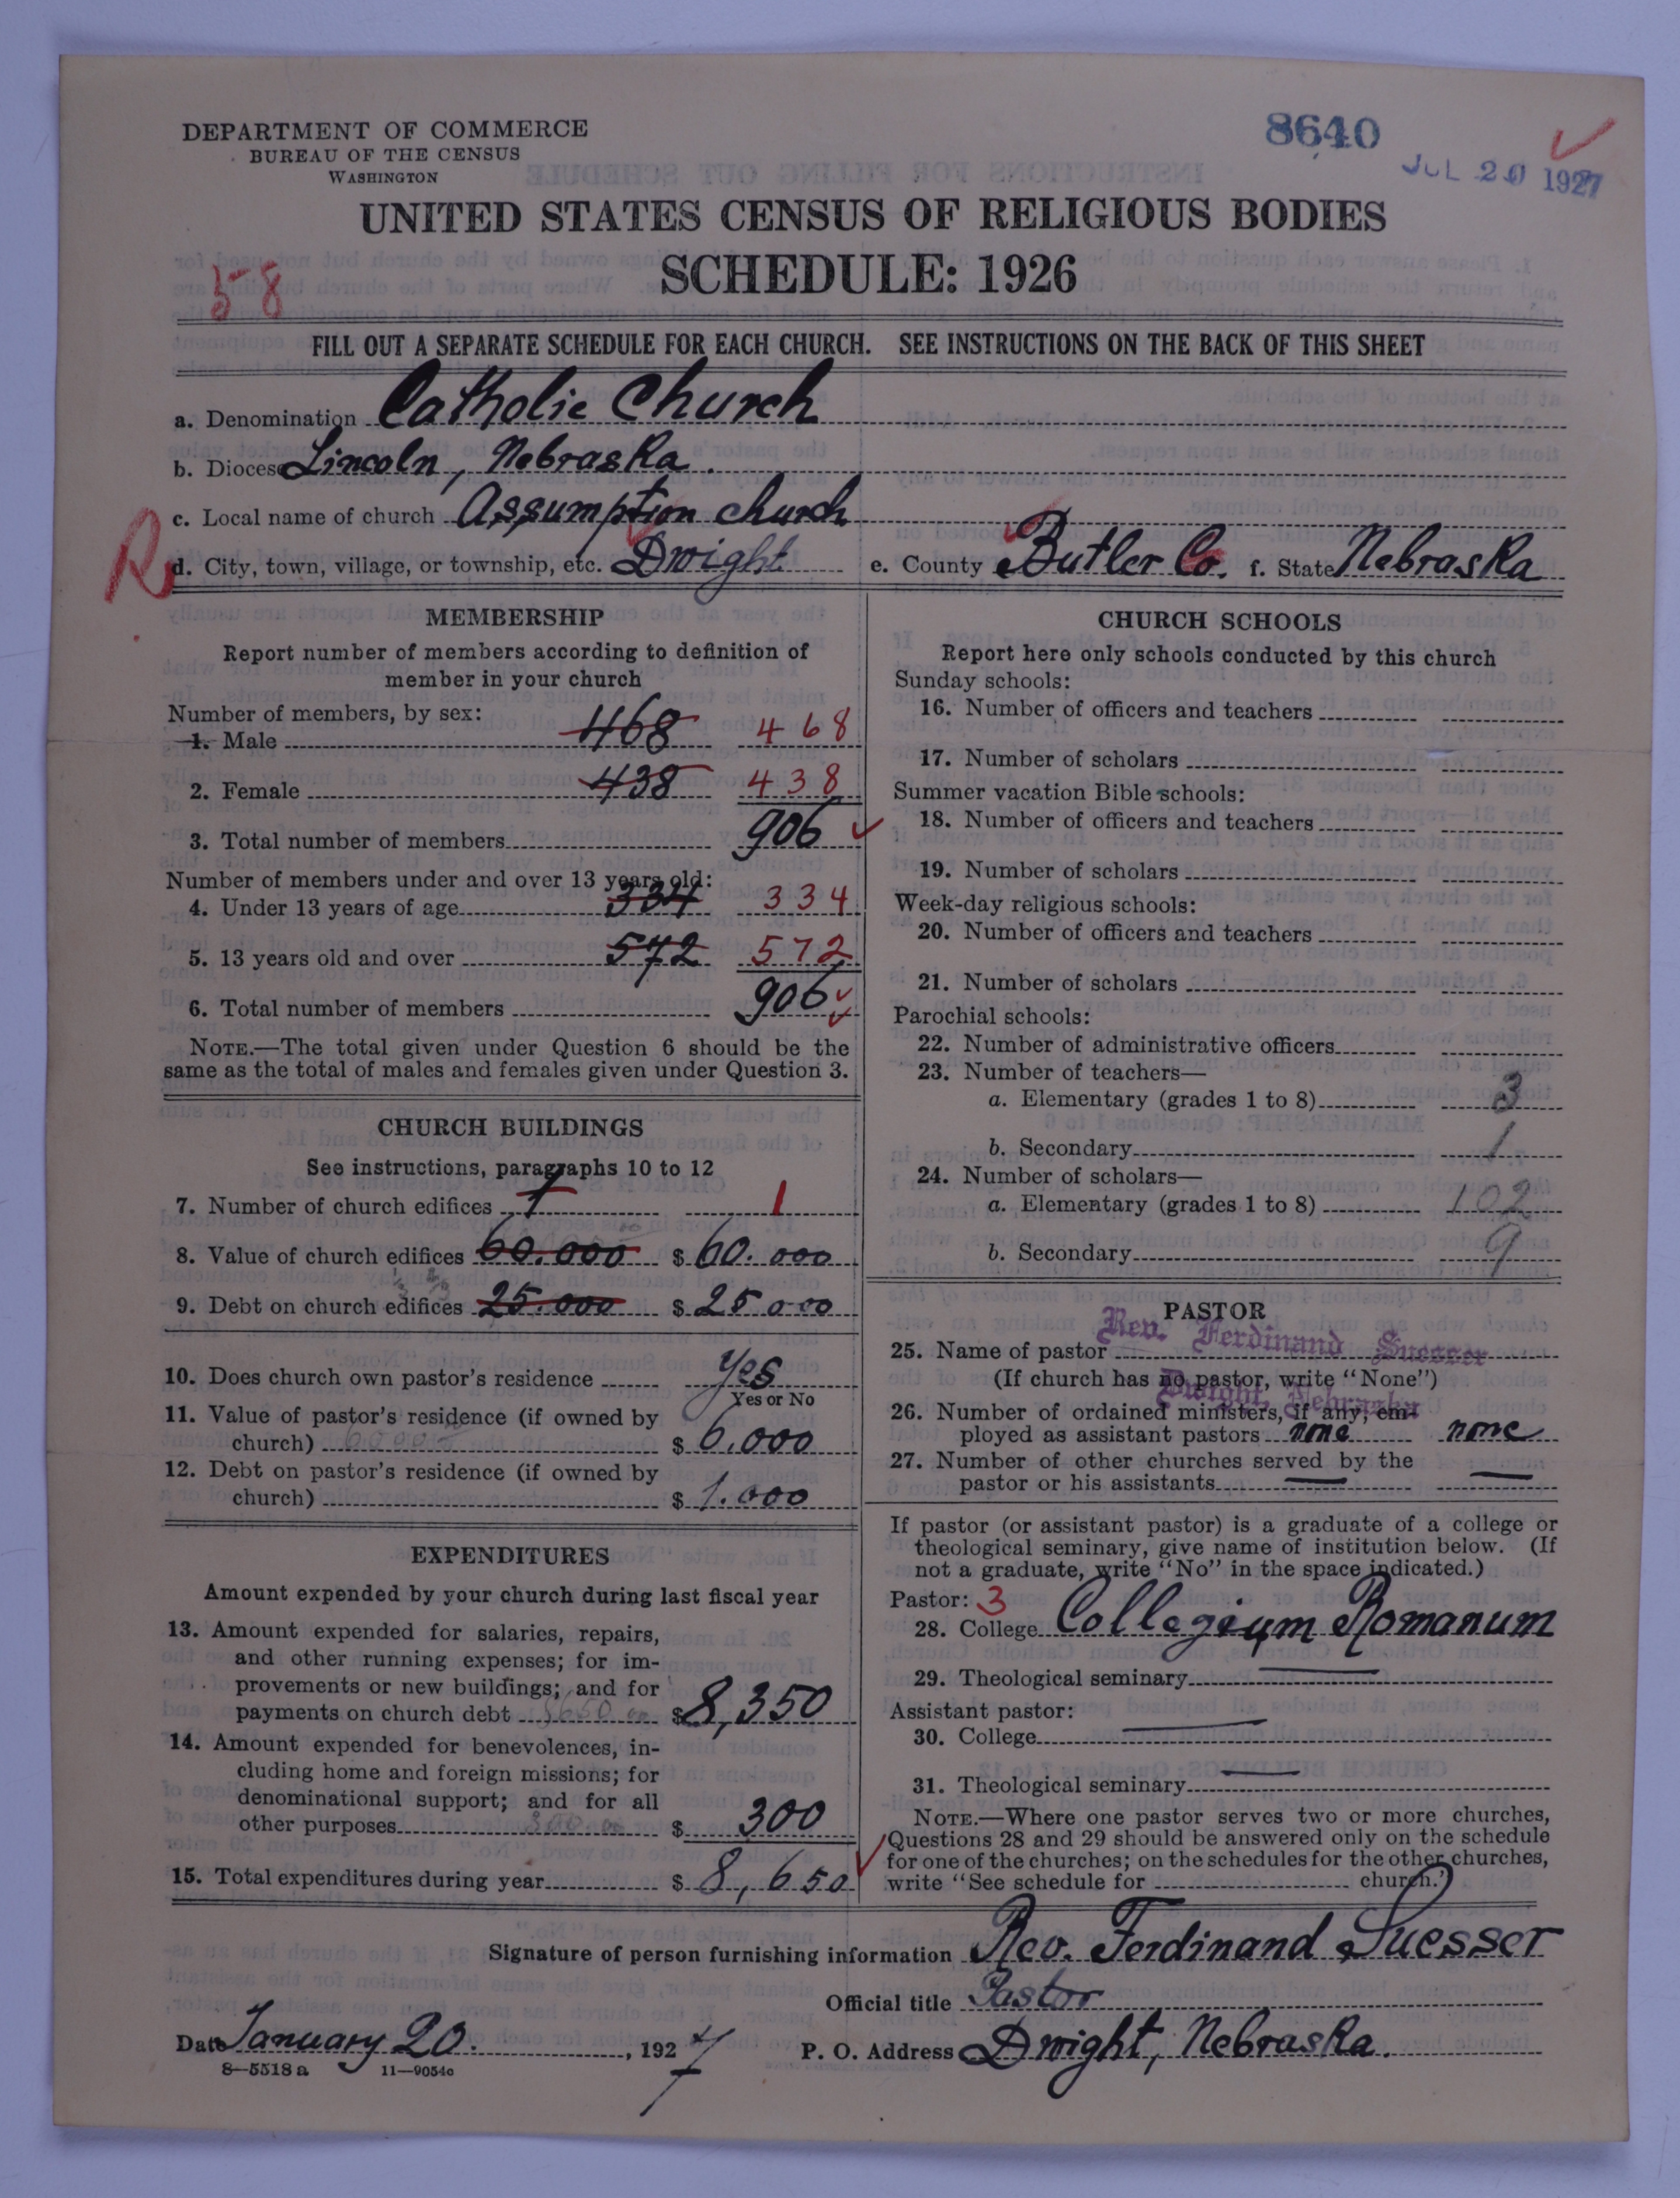 DEPARTMENT OF COMMERCE
BUREAU OF THE CENSUS
WASHINGTON
8640
JUL 20 1927
UNITED STATES CENSUS OF RELIGIOUS BODIES
SCHEDULE: 1926
58
FILL OUT A SEPARATE SCHEDULE FOR EACH CHURCH. SEE INSTRUCTIONS ON THE BACK OF THIS SHEET
a. Denomination Catholic Church
b. Diocese Lincoln, Nebraska.
c. Local name of church Assumption church
R
d. City, town, village, or township, etc. Dwight e. County Butler Co. f. State Nebraska
MEMBERSHIP
Report number of members according to definition of
member in your church
Number of members, by sex:
1. Male 468 468
2. Female 438 438
3. Total number of members 906
Number of members under and over 13 years old:
4. Under 13 years of age 334 334
5. 13 years old and over 572 572
6. Total number of members 906
NOTE.—The total given under Question 6 should be the
same as the total of males and females given under Question 3.
CHURCH BUILDINGS
See instructions, paragraphs 10 to 12
7. Number of church edifices 1 1
8. Value of church edifices 60.000 $ 60.000
9. Debt on church edifices 25.000 $ 25000
10. Does church own pastor's residence Yes
Yes or No
11. Value of pastor's residence (if owned by
church) 6000 $ 6.000
12. Debt on pastor's residence (if owned by
church) $ 1.000
EXPENDITURES
Amount expended by your church during last fiscal year
13. Amount expended for salaries, repairs,
and other running expenses; for im-
provements or new buildings; and for
payments on church debt 8650 00 $ 8,350
14. Amount expended for benevolences, in-
cluding home and foreign missions; for
denominational support; and for all
other purposes 300 00 $ 300
15. Total expenditures during year $ 8,650
CHURCH SCHOOLS
Report here only schools conducted by this church
Sunday schools:
16. Number of officers and teachers
17. Number of scholars
Summer vacation Bible schools:
18. Number of officers and teachers
19. Number of scholars
Week-day religious schools:
20. Number of officers and teachers
21. Number of scholars
Parochial schools:
22. Number of administrative officers
23. Number of teachers—
a. Elementary (grades 1 to 8) 3
b. Secondary 1
24. Number of scholars—
a. Elementary (grades 1 to 8) 102
b. Secondary 9
PASTOR
25. Name of pastor Rev. Ferdinand Suesser
(If church has no pastor, write "None")
Dwight, Nebraska
26. Number of ordained ministers, if any, em-
ployed as assistant pastors none none
27. Number of other churches served by the
pastor or his assistants
If pastor (or assistant pastor) is a graduate of a college or
theological seminary, give name of institution below. (If
not a graduate, write "No" in the space indicated.)
Pastor: 3
28. College Collegium Romanum
29. Theological seminary
Assistant pastor:
30. College
31. Theological seminary
NOTE.—Where one pastor serves two or more churches,
Questions 28 and 29 should be answered only on the schedule
for one of the churches; on the schedules for the other churches,
write "See schedule for church.")
Signature of person furnishing information Rev. Ferdinand Suesser
Official title Pastor
Date January 20., 1927 P. O. Address Dwight, Nebraska.
8—5518 a 11—9054c